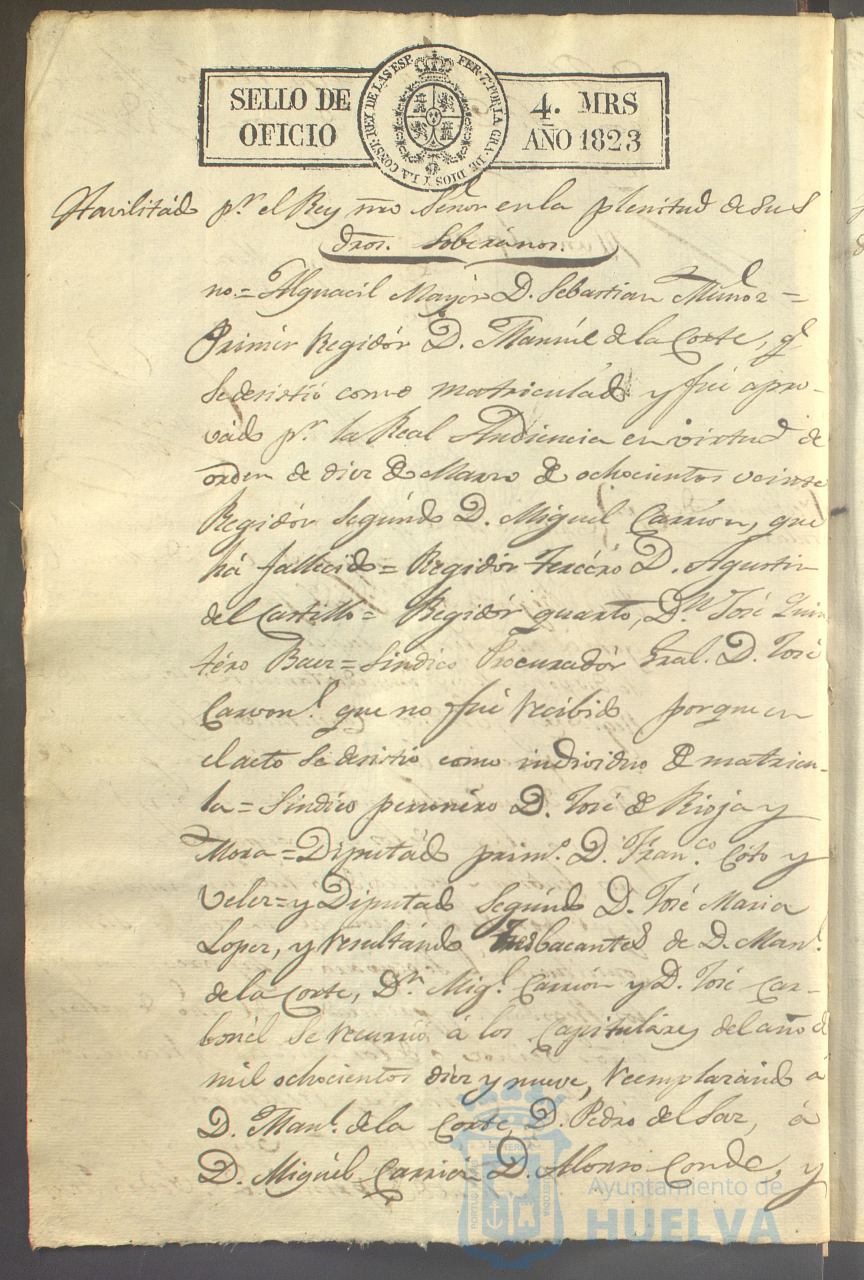 SELLO DE OFICIO
FER. 7.º POR LA GRA. DE DIOS Y LA CONST. REY DE LAS ESP.
4. MRS
AÑO 1823
Havilitado pr. el Rey nro Señor en la plenitud de sus
dros. Soberanos.
no = Alguacil Mayor D. Sebastian Muñoz =
Primér Regidór D. Manuel de la Corte, ql
se desistió como matriculado y fué apro-
vado pr. la Real Audiencia en virtud de
orden de diez de Marzo de ochocientos veinte
Regidór Segúndo D. Miguel Carrion, que
há fallecido = Regidór tercéro D. Agustin
del Castillo = Regidór quarto, Dn. José Quin
téro Baez = Sindico Procuradór Gral. D. José
Carvonl. que no fué recibido porque en
el acto se desistió como individuo de matricu-
la = Sindico personéro D. José de Rioja y
Mora = Diputádo prim. D. Franco. Coto y
Velez = y Diputado Segúndo D. José Maria
Lopez, y resultándo tres bacantes de D. Manl.
de la Corte, Dn. Migl. Carrion y D. José Car-
bonél se recurrió á los Capituláres del año d
mil ochocientos diez y nueve, reemplazando á
D. Manl. de la Corte D. Pedro del Saz, á
D. Miguél Carrion D. Alonso Conde, y
Ayuntamiento de
HUELVA